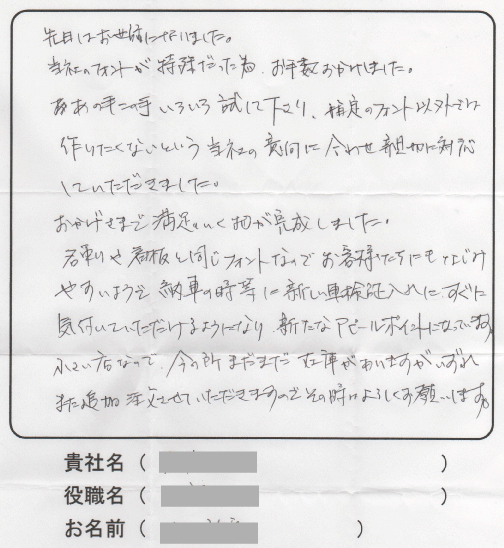 先日はお世話になりました。
当社のフォントが特殊だった為、お手数おかけしました。
あの手この手いろいろ試して下さり、指定のフォント以外では
作りたくないという当社の意向に合わせ親切に対応
していただきました。
おかげさまで満足いく物が完成しました。
名刺や看板と同じフォントなのでお客様たちにもなじみ
やすいようで納車の時等に新しい車検証入れにすぐに
気付いていただけるようになり新たなアピールポイントになっています。
小さい店なので、今の所まだまだ在庫がありますがいずれ
また追加注文させていただきますのでその時はよろしくお願いします。
貴社名（ ）
役職名（ ）
お名前（ ）